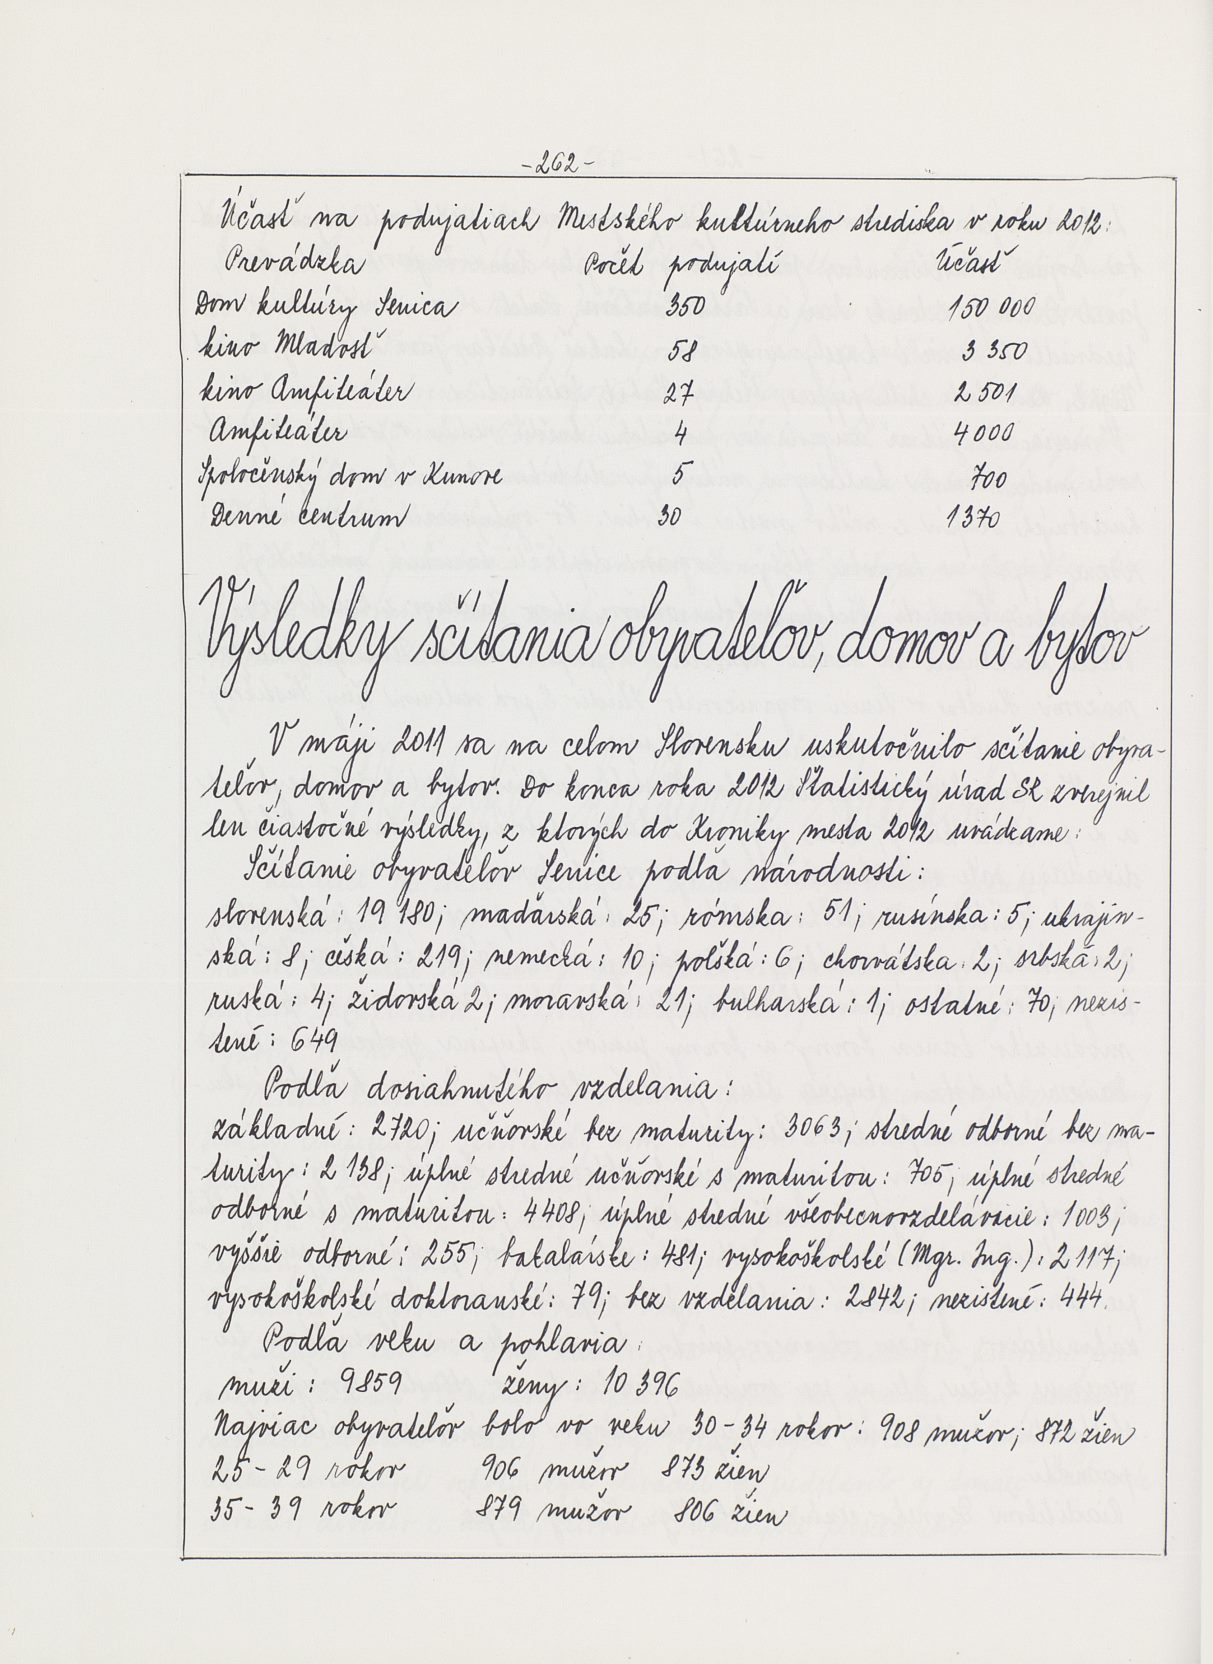 -262-
Účasť na podujatiach Mestského kultúrneho strediska v roku 2012:
Prevádzka Počet podujatí Účasť
Dom kultúry Senica 350 150 000
kino Mladosť 58 3 350
kino Amfiteáter 27 2 501
Amfiteáter 4 4000
Spoločenský dom v Kunove 5 700
Denné centrum 30 1370
Výsledky sčítania obyvateľov, domov a bytov
V máji 2011 sa na celom Slovensku uskutočnilo sčítanie obyva-
teľov, domov a bytov. Do konca roka 2012 Štatistický úrad SR zverejnil
len čiastočné výsledky, z ktorých do Kroniky mesta 2012 uvádzame:
Sčítanie obyvateľov Senice podľa národnosti:
slovenská: 19 180; maďarská: 25; rómska: 51; rusínska: 5; ukrajin-
ská: 8; česká: 219; nemecká: 10; poľská: 6; chorvátska: 2; srbská: 2;
ruská: 4; židovská 2; moravská: 21; bulharská: 1; ostatné: 70; nezis-
tené: 649
Podľa dosiahnutého vzdelania:
základné: 2720; učňovské bez maturity: 3063; stredné odborné bez ma-
turity: 2 138; úplné stredné učňovské s maturitou: 705; úplné stredné
odborné s maturitou: 4408; úplné stredné všeobecnovzdelávacie: 1003;
vyššie odborné: 255; bakalárske: 481; vysokoškolské (Mgr. Ing.): 2 117;
vysokoškolské doktoranské: 79; bez vzdelania: 2842; nezistené: 444.
Podľa veku a pohlavia:
muži: 9859 ženy: 10 396
Najviac obyvateľov bolo vo veku 30-34 rokov: 908 mužov; 872 žien
25-29 rokov 906 mužov 873 žien
35-39 rokov 879 mužov 806 žien